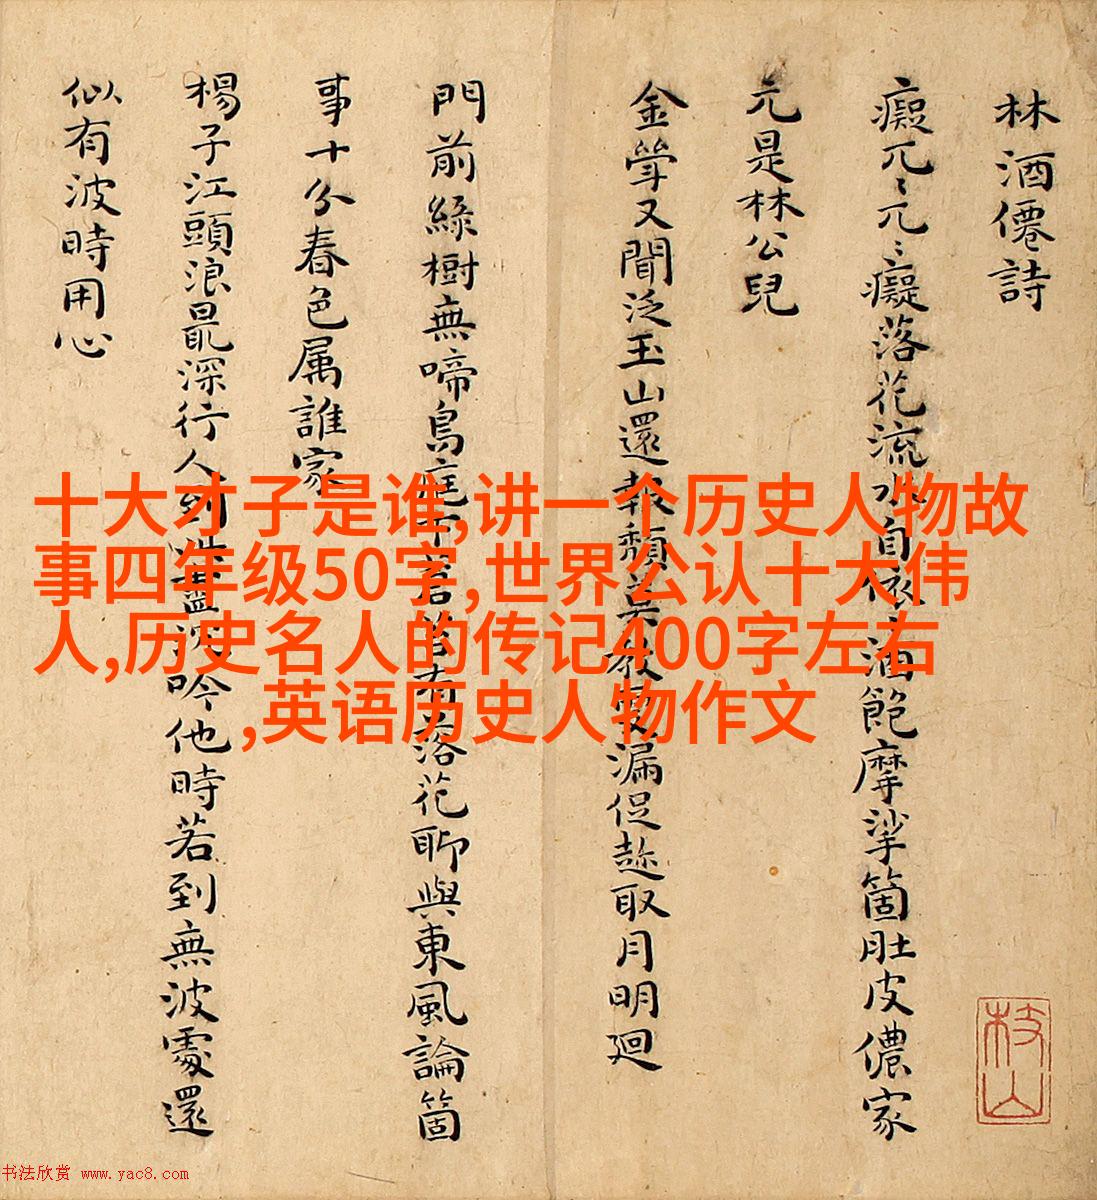 林酒僊詩
癡兀〻兀〻癡落花流水自依酒飽摩挲箇肚皮儂家
元是林公兒
金䇶又聞泛玉山還報頹莫教更漏促趁取月明廻
門前綠樹無啼鳥庭下蒼苔有落花聊與東風論箇
事十分春色属誰家
楊子江頭浪最深行人到此盡沉吟他時若到無波處還
似有波時用心
枝山
十大才子是谁,讲一个历史人物故
事四年级50字,世界公认十大伟
人,历史名人的传记400字左右
,英语历史人物作文
书法欣赏 www.yac8.com